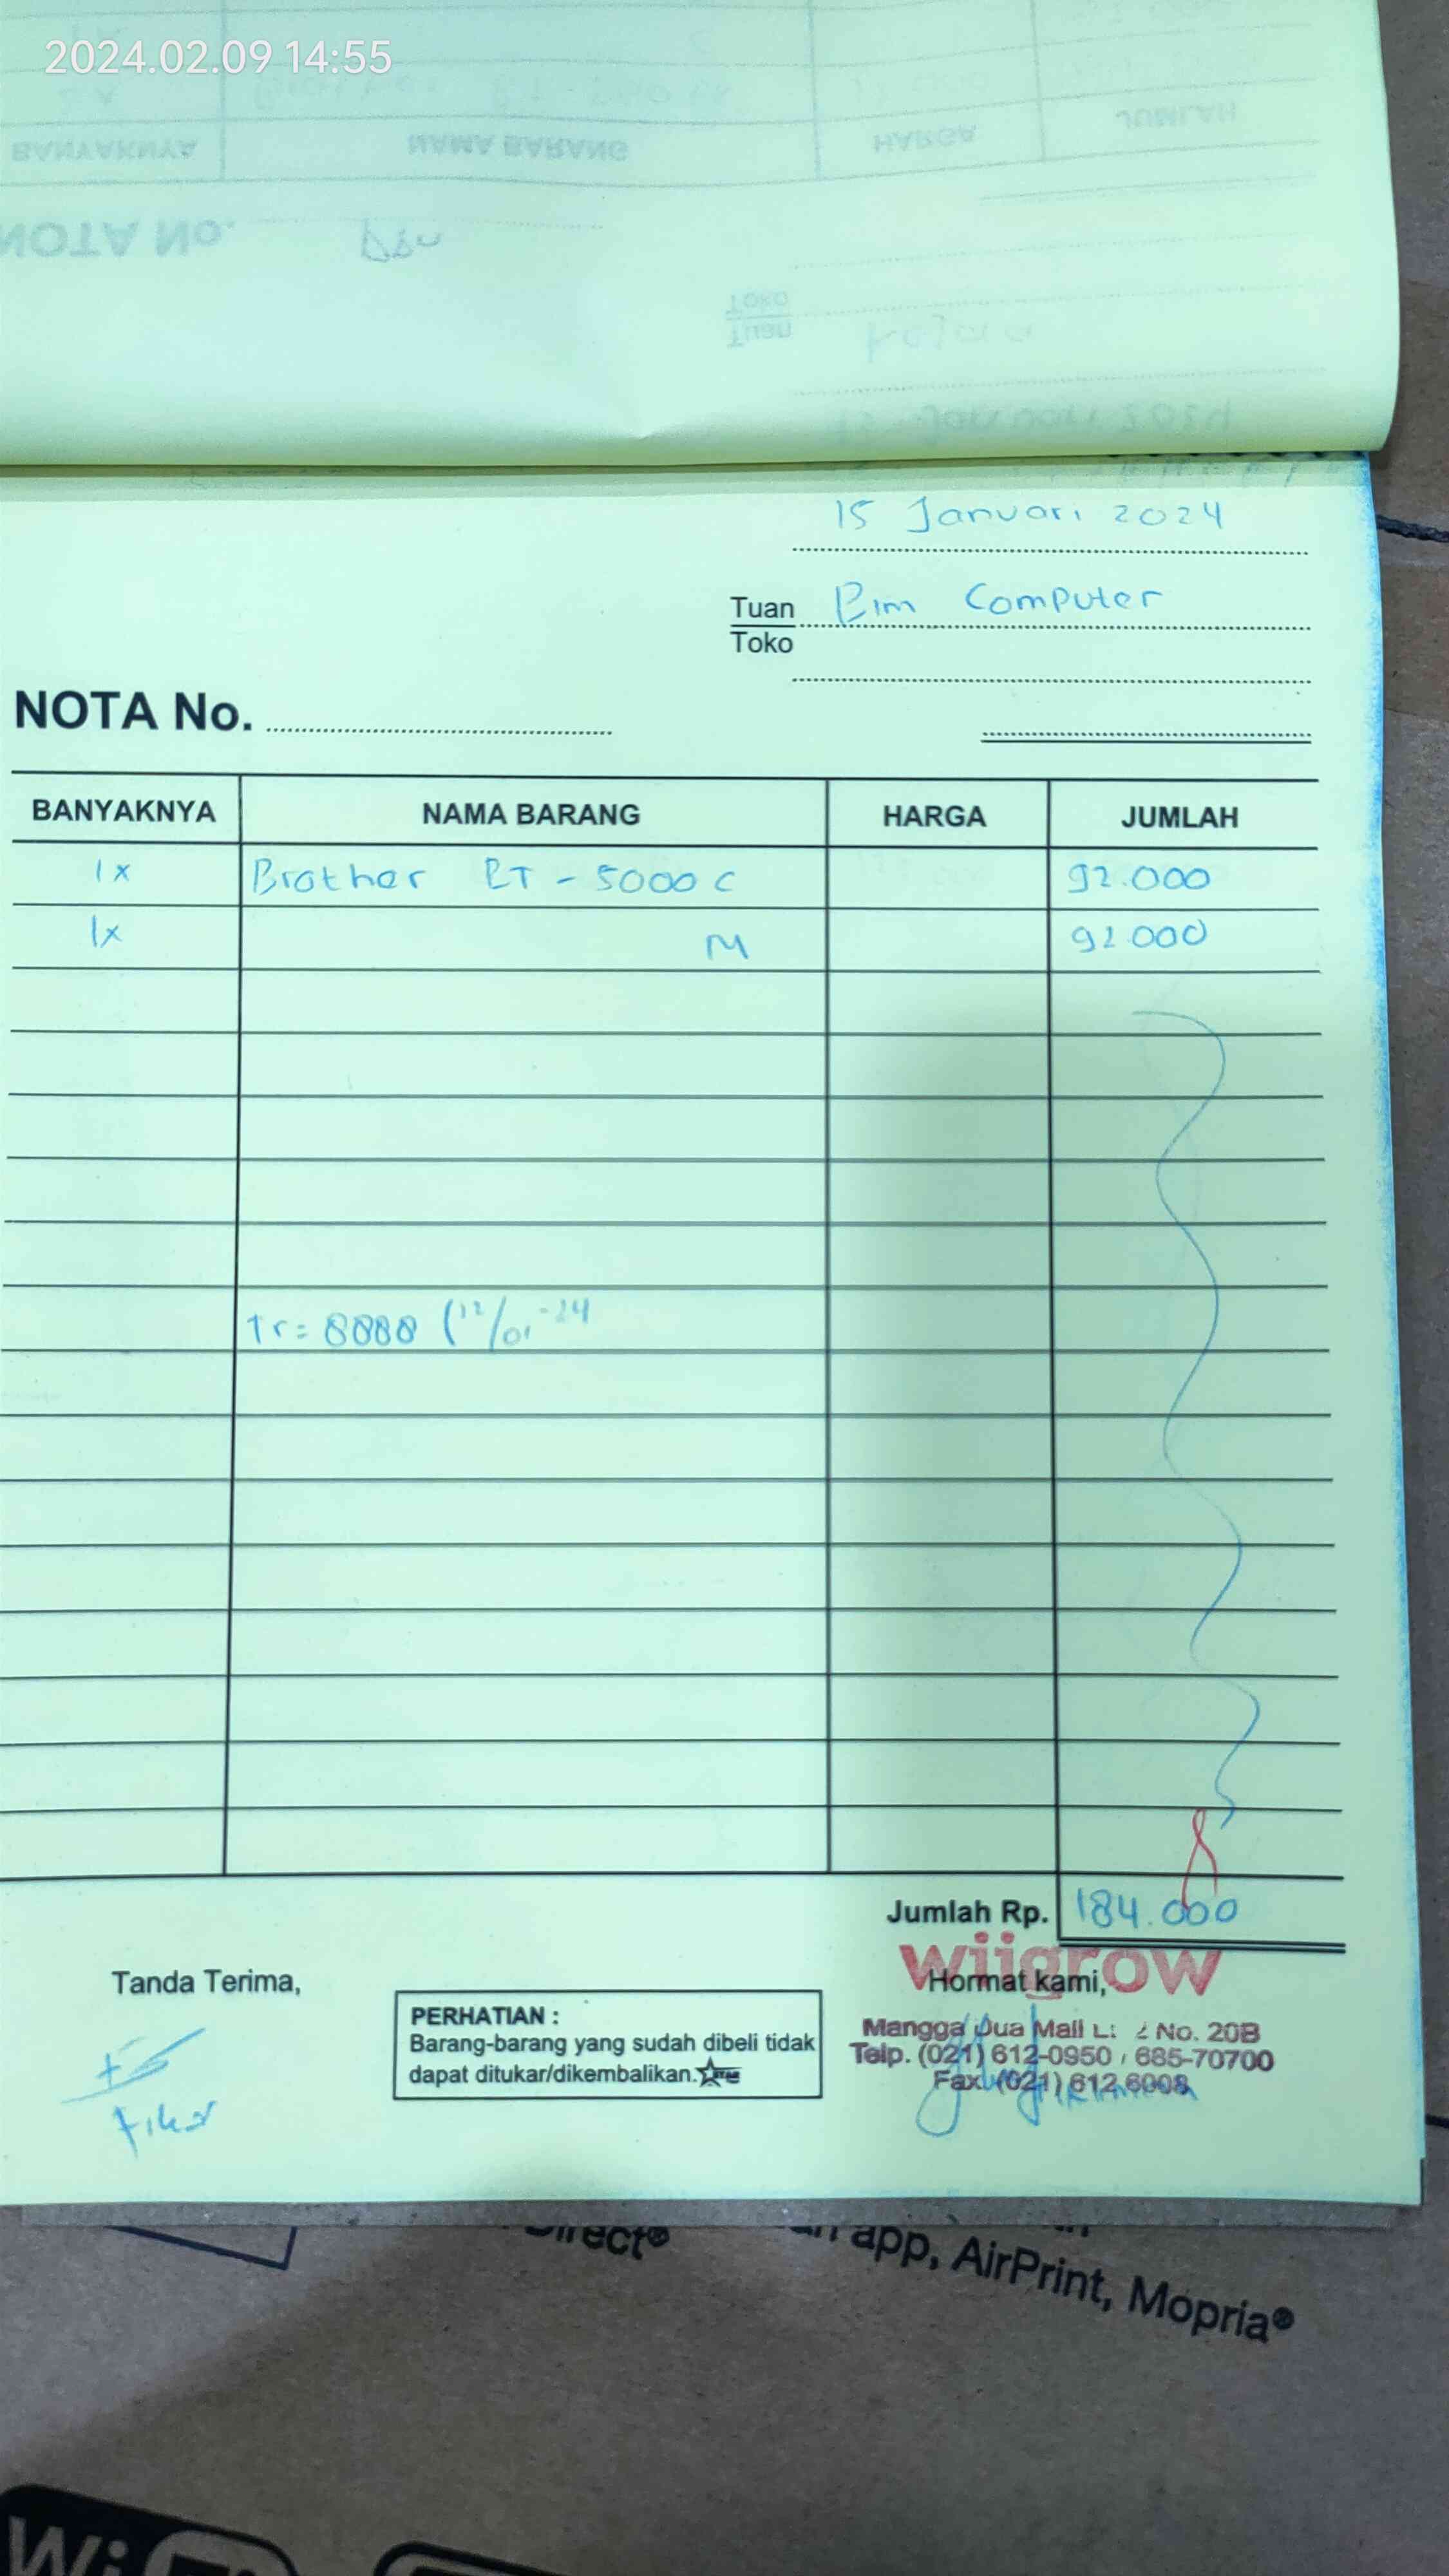 2024.02.09 14:55
BANYAKNYA NAMA BARANG HARGA JUMLAH
NOTA No.
Toko
Tuan
15 Januari 2024
Tuan Bim Computer
Toko
NOTA No.
BANYAKNYA NAMA BARANG HARGA JUMLAH
1x Brother BT - 5000 C 92.000
1x M 92.000
Tr = 8088 (12/01-24
Jumlah Rp. 184.000
wiigrow
Tanda Terima, Hormat kami,
PERHATIAN :
Barang-barang yang sudah dibeli tidak
dapat ditukar/dikembalikan.
Mangga Dua Mall Lt 2 No. 20B
Telp. (021) 612-0950 / 685-70700
Fax. (021) 612 6008
Direct®
app, AirPrint, Mopria®
Wi